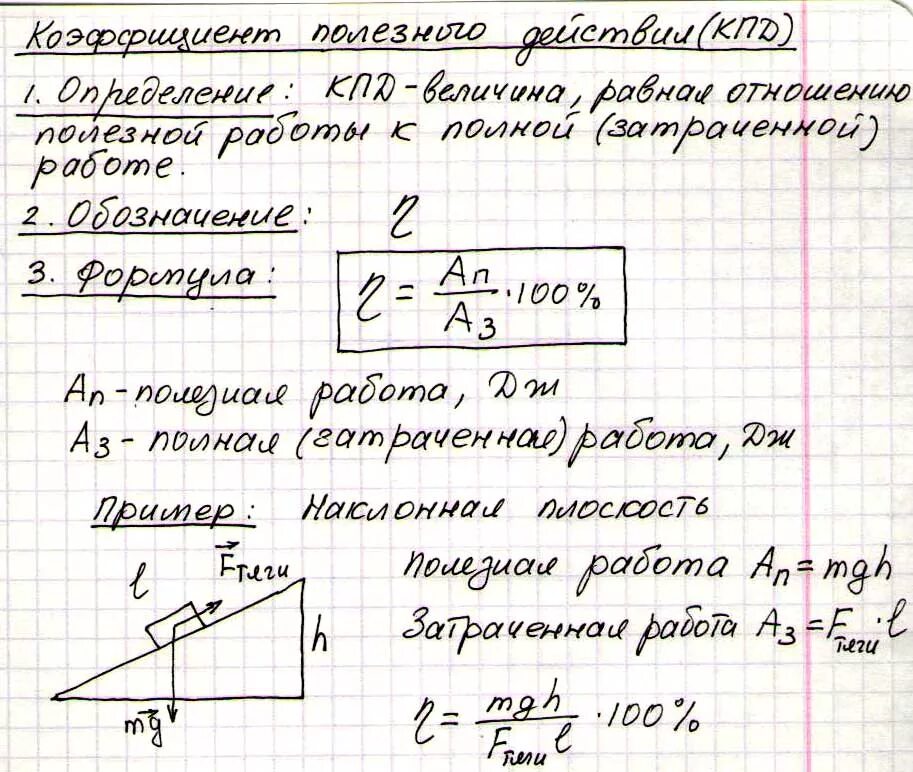 Коэффициент полезного действия (КПД)
1. Определение: КПД - величина, равная отношению
полезной работы к полной (затраченной)
работе.
2. Обозначение: η
3. Формула: η = Aп/Aз · 100%
Aп - полезная работа, Дж
Aз - полная (затраченная) работа, Дж
Пример: Наклонная плоскость
l
F⃗тяги
h
mg⃗
Полезная работа Aп = mgh
Затраченная работа Aз = Fтяги · l
η = mgh/Fтяги l · 100%